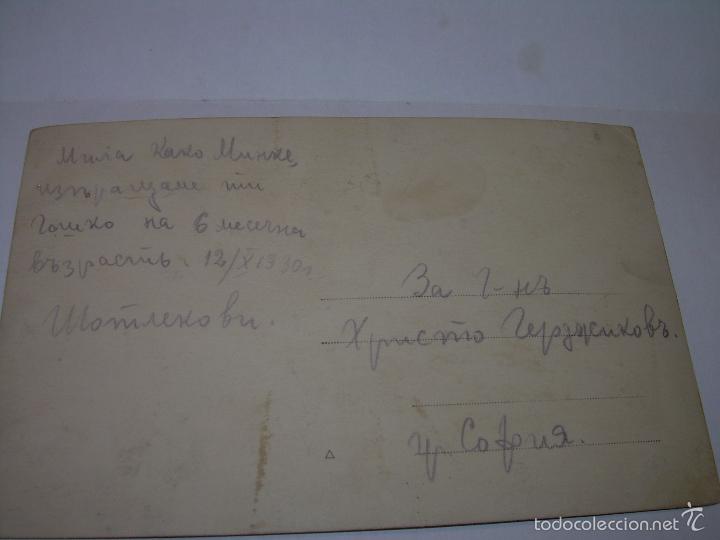 Мила Како Минке,
изпращаме ти
Гошко на 6 месечна
възрасть. 12/X 1930 г.
Шотлекови.
За Г-нъ
Христо Герджиковъ.
гр. София.
todocoleccion.net